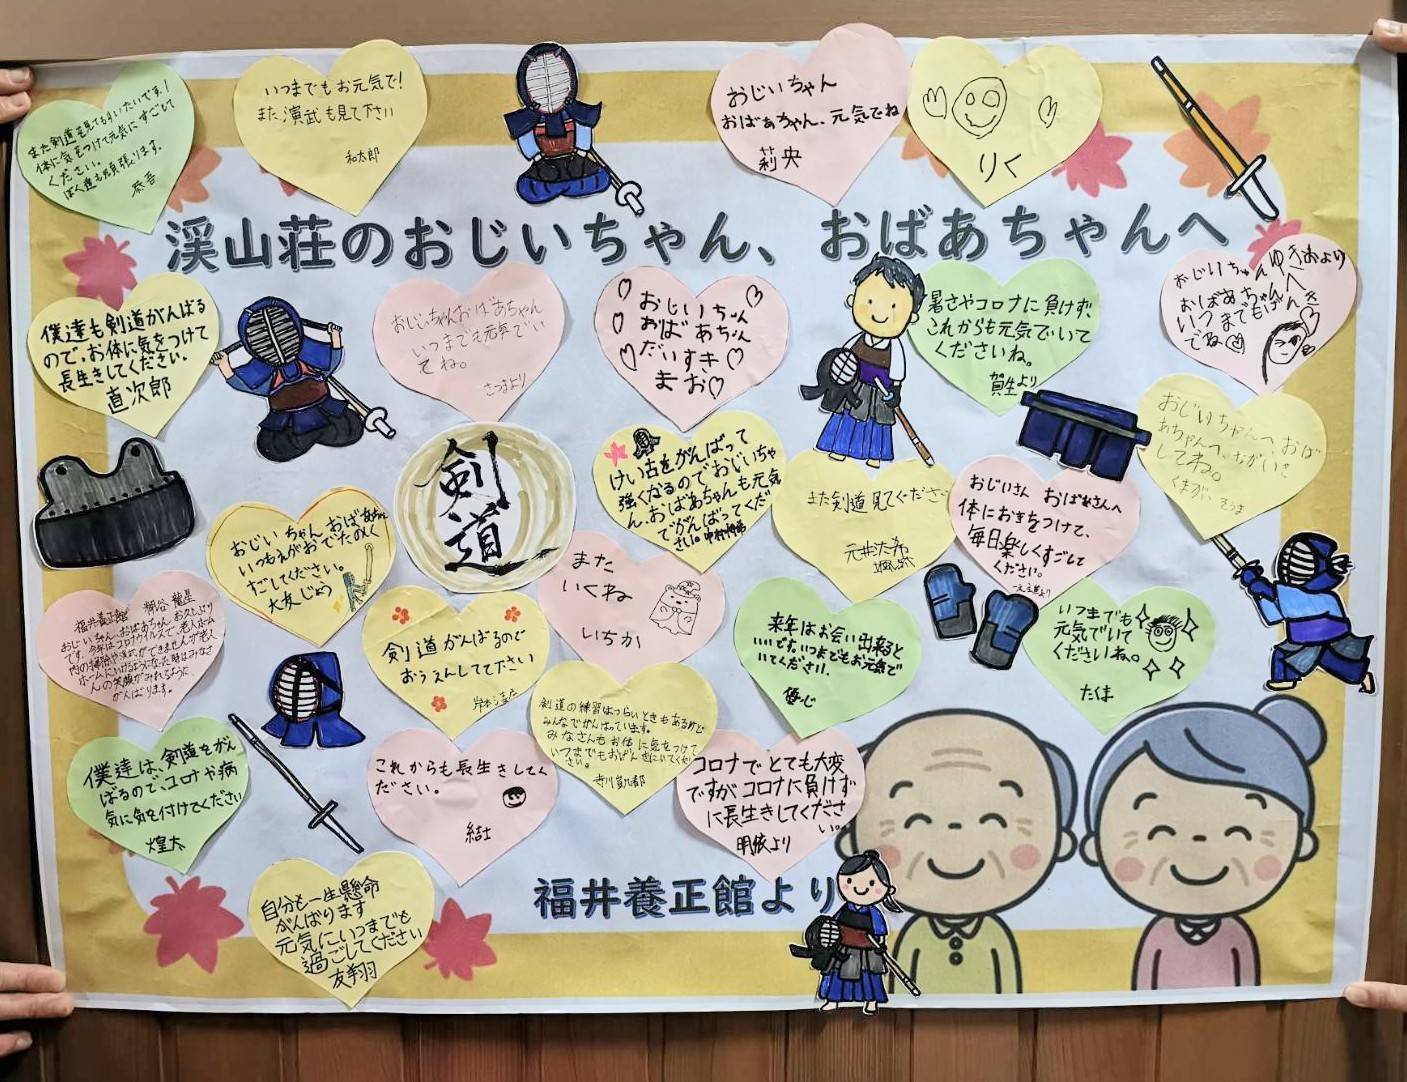 また剣道を見てもらいたいです!
体に気をつけて元気にすごして
ください。
ぼく達も頑張ります。
泰吾
いつまでもお元気で!
また演武も見て下さい
和太郎
おじいちゃん
おばぁちゃん、元気でね
莉央
りく
渓山荘のおじいちゃん、おばあちゃんへ
僕達も剣道がんばる
ので、お体に気をつけて
長生きしてください。
直次郎
おじぃちゃんおばあちゃん
いつまでも元気でい
てね。
さつまより
おじいちゃん
おばあちゃん
だいすき
まお
暑さやコロナに負けず、
これからも元気でいて
くださいね。
賀生より
ゆきおより
おじいちゃんへ
おばあちゃんへ
いつまでもげんき
でね
おじいちゃんへ、おば
あちゃんへ、ながいき
してね。
剣道
けい古をがんばって
強くなるのでおじいちゃ
ん、おばあちゃんも元気
でがんばってくだ
さい。
また剣道見てくださ
おじいさん おばあさんへ
体にお気をつけて、
毎日楽しくすごして
ください。
おじいちゃん、おばあちゃん
いつもえがおでたのしく
すごしてください。
また
いくね
いちか
福井養正館
おじいちゃん、おばあちゃん お久しぶり
です。今年はコロナウイルスで、老人ホーム
剣道がんばるので
おうえんしてて下さい
来年はお会い出来ると
いいです。いつまでもお元気で
いてください!
優心
いつまでも
元気でいて
くださいね。
たくま
剣道の練習はつらいときもあるけど
みんなでがんばっています。
みなさんもお体に気をつけて
いつまでもおげんきにいてくだ
さい。
僕達は、剣道をがん
ばるので、コロナや病
気に気を付けてください
煌太
これからも長生きしてく
ださい。
結士
コロナでとても大変
ですがコロナに負けず
に長生きしてくださ
い。
明依より
自分も一生懸命
がんばります
元気にいつまでも
過ごしてください
友翔
福井養正館より